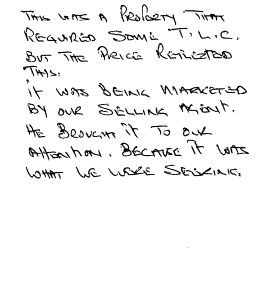 THIS WAS A PROPERTY THAT
REQUIRED SOME T.L.C.
BUT THE PRICE REFLECTED
THIS.
IT WAS BEING MARKETED
BY OUR SELLING AGENT.
HE BROUGHT IT TO OUR
ATTENTION. BECAUSE IT WAS
WHAT WE WERE SEEKING.